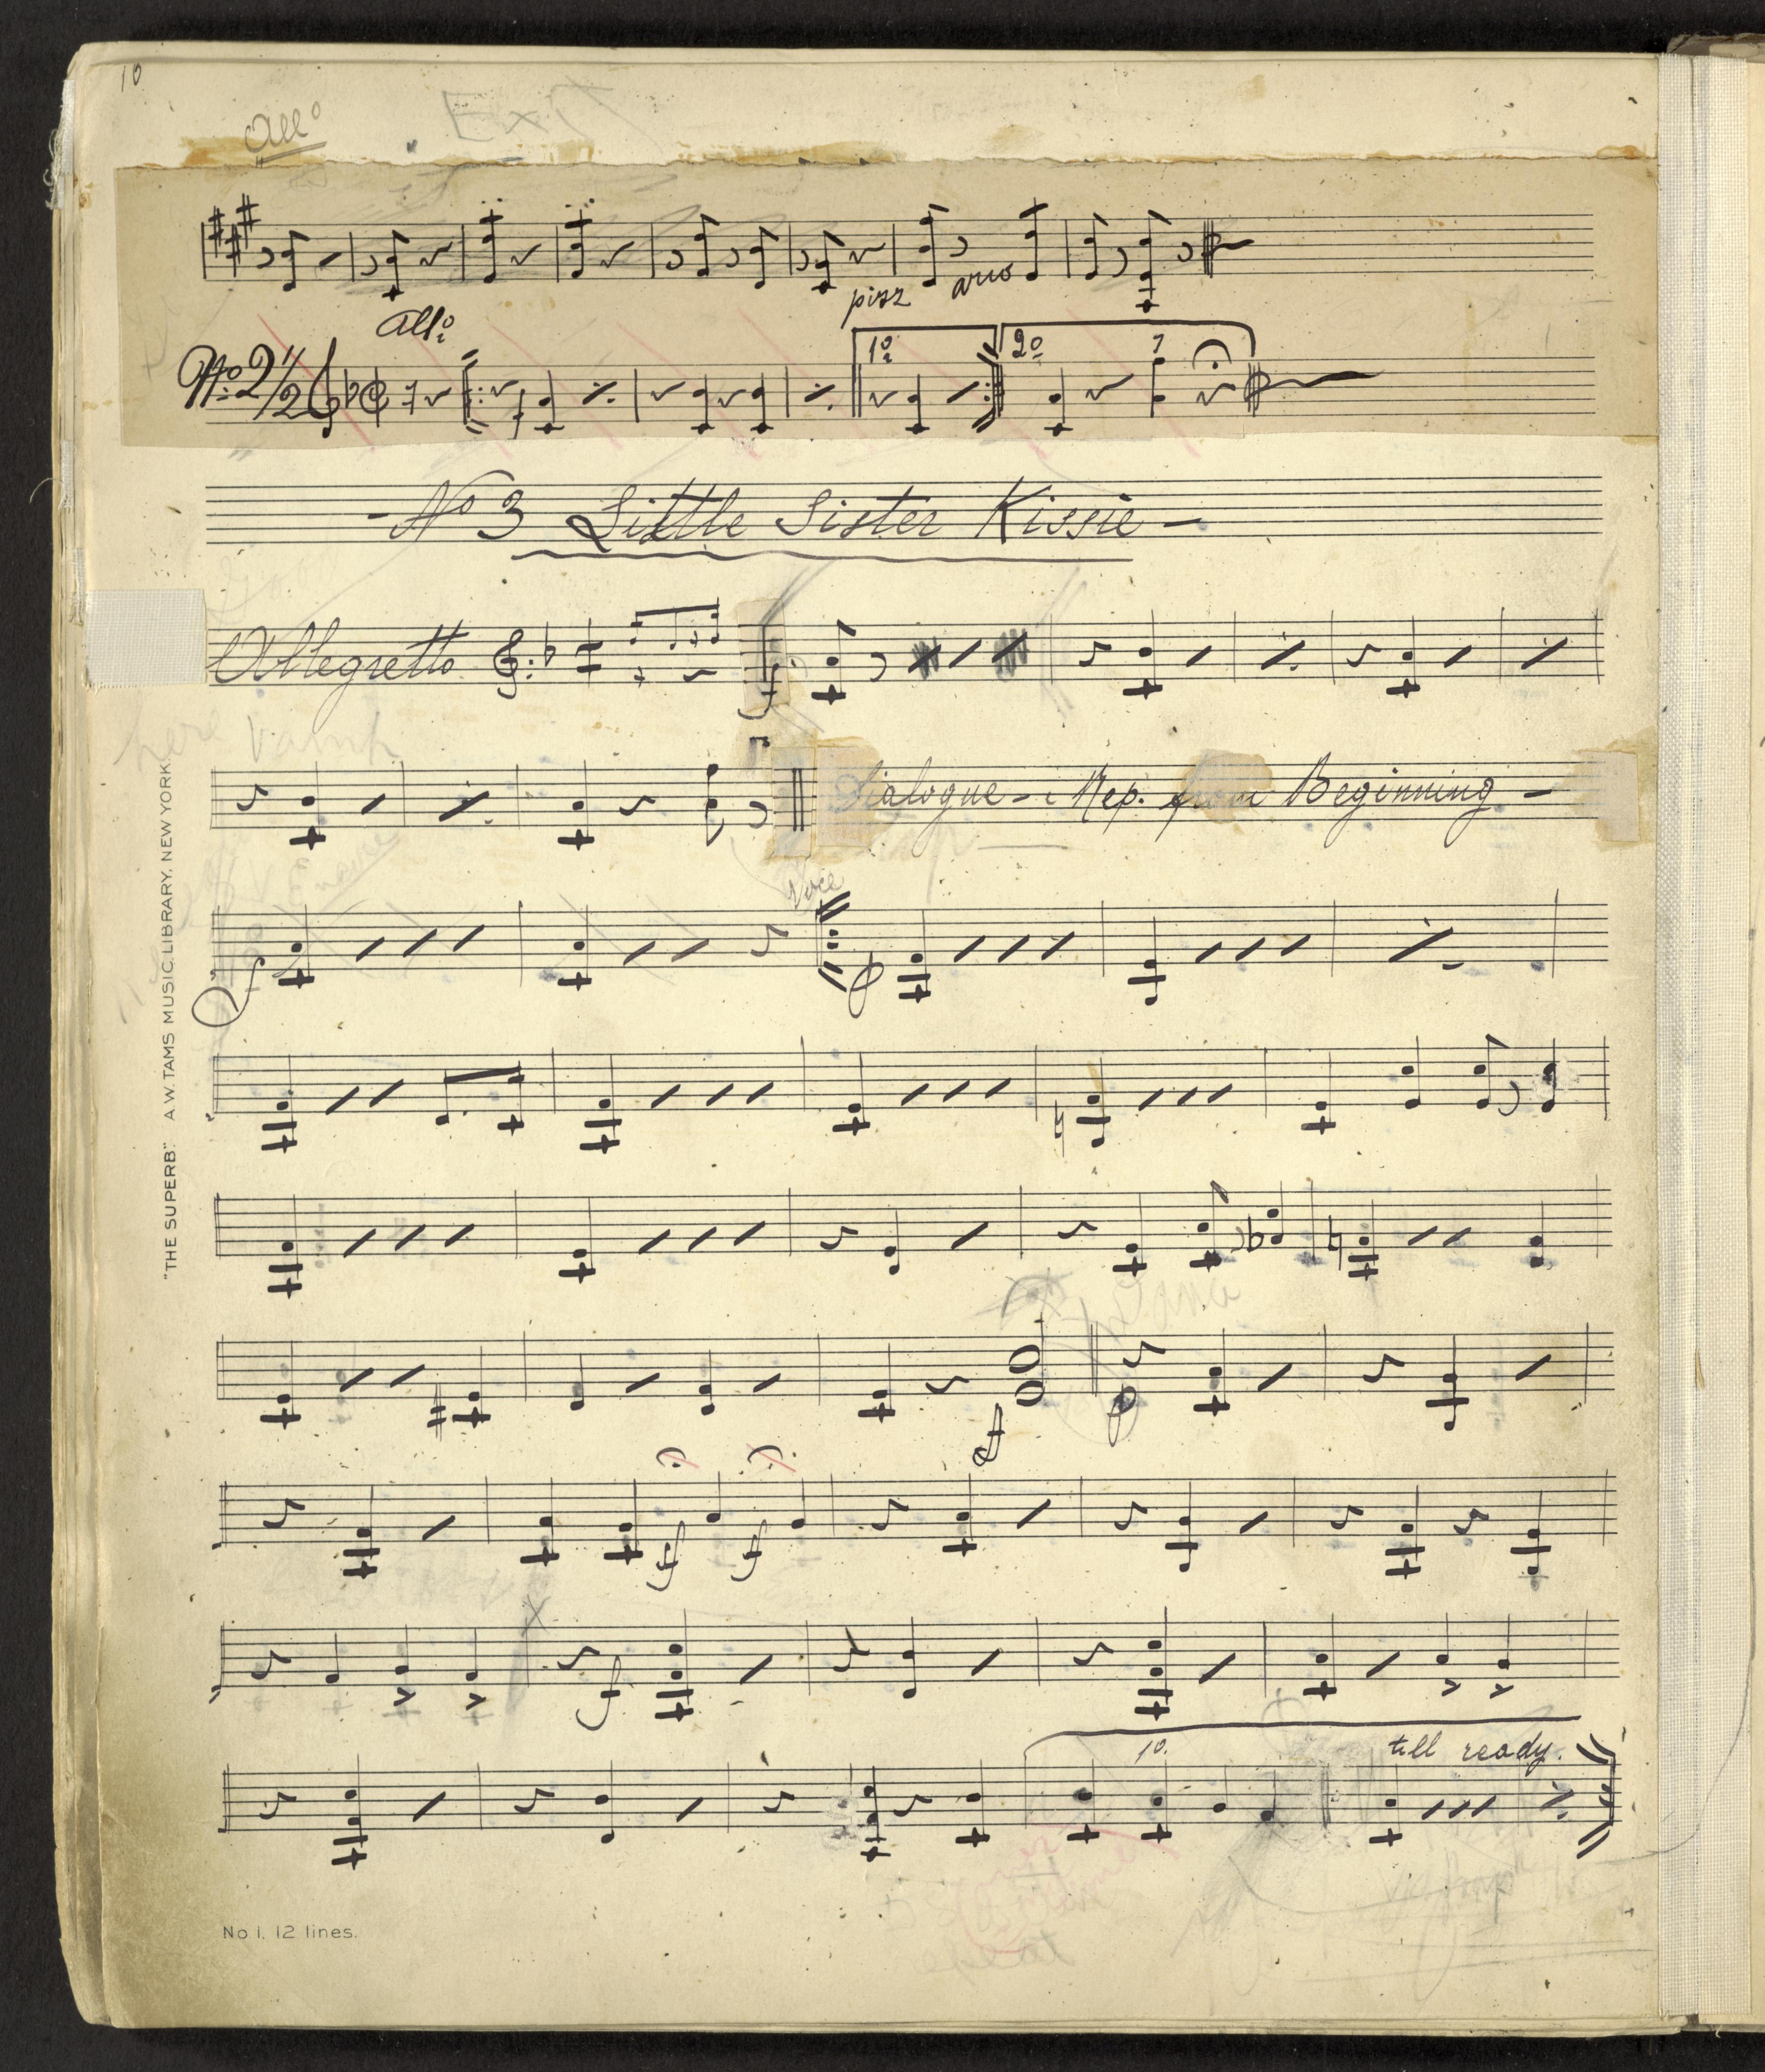 10
All⁰
Exit
pizz arco
All⁰
Nº 2 1/2 1º 2º
- Nº 3 Little Sister Kissie -
Allegretto f
here Vamp
Dialogue - Rep. from Beginning -
Voce
p
f p
f f
f
1º. till ready.
"THE SUPERB." A.W. TAMS MUSIC LIBRARY, NEW YORK.
No 1. 12 lines.